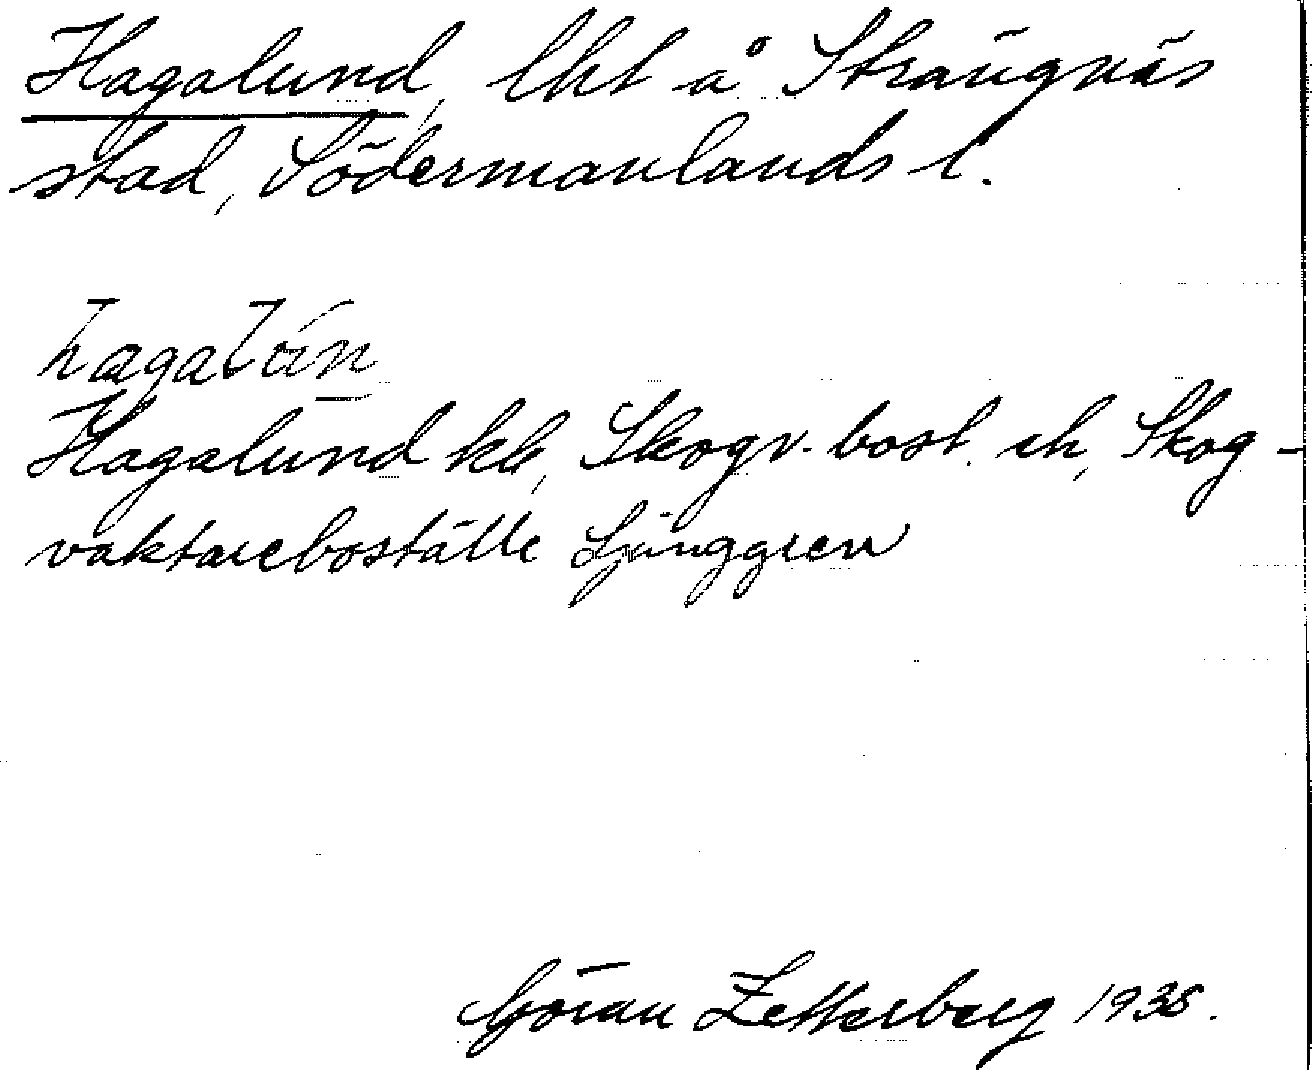 Hagalund, lht å Strängnäs
stad, Södermanlands l.
Hagalund kb, Skogv. bost. eh, Skog-
vaktareboställe Ljunggren
Göran Zetterberg 1935.